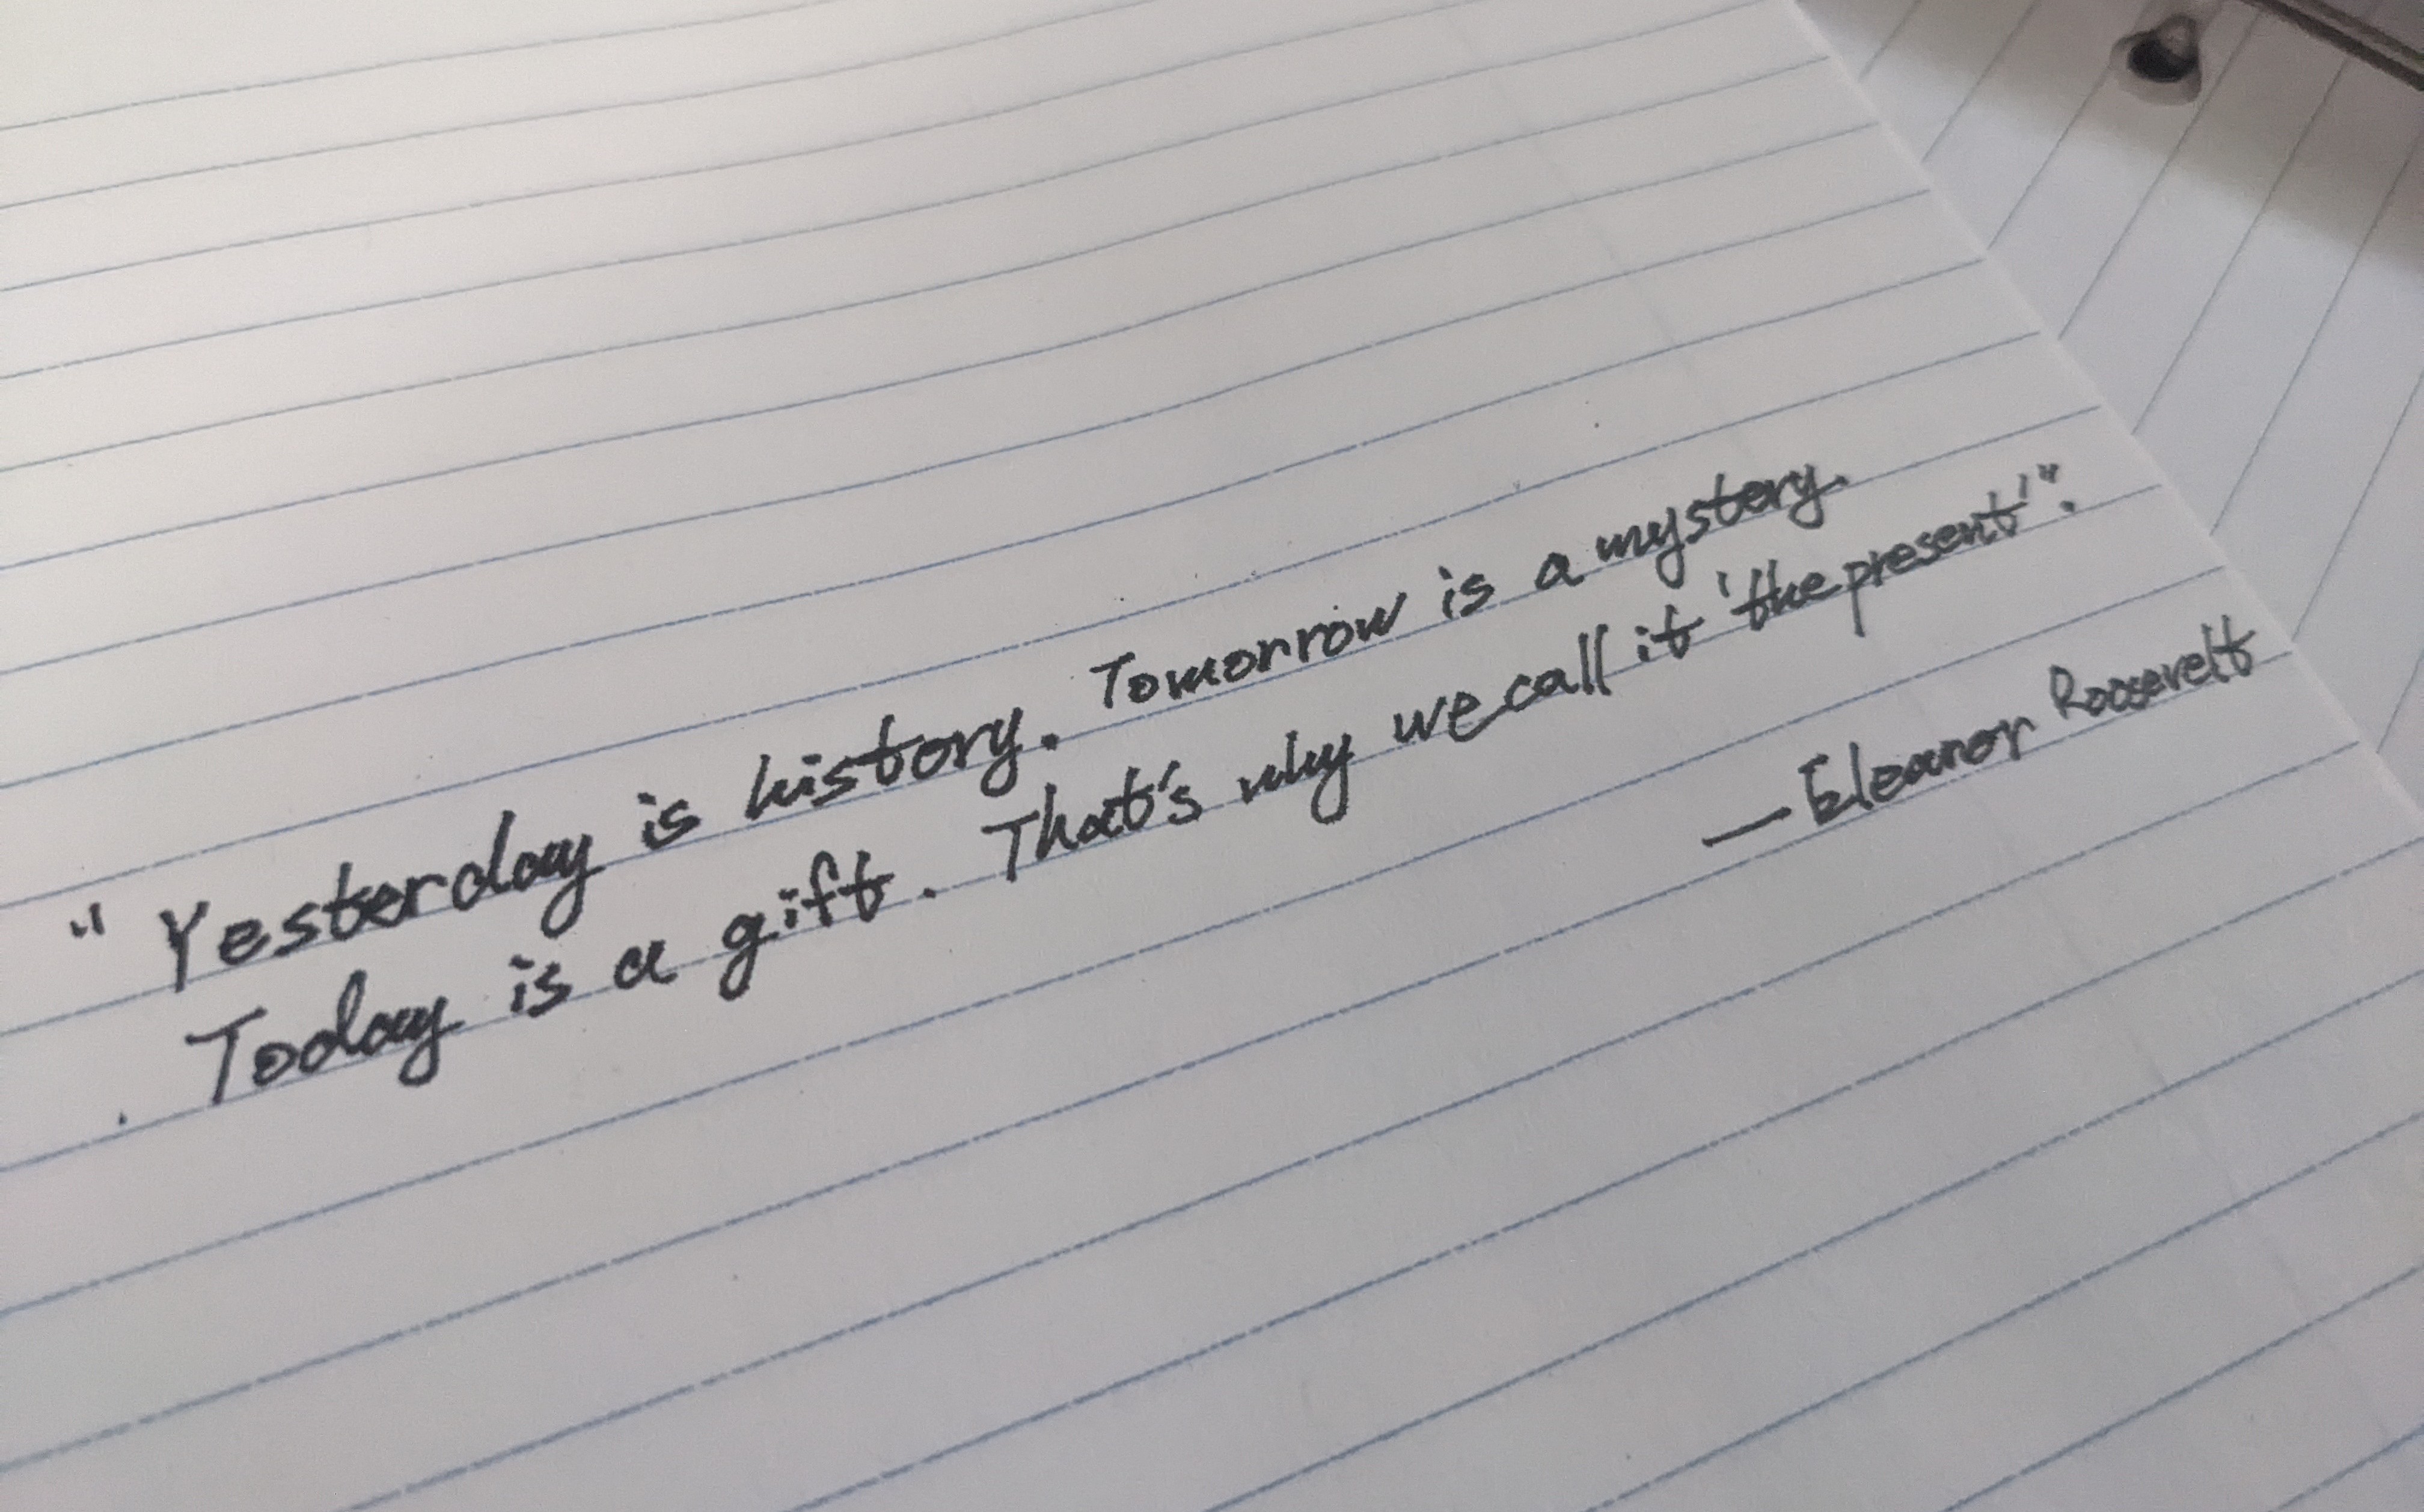 "Yesterday is history. Tomorrow is a mystery.
Today is a gift. That's why we call it 'the present'".
—Eleanor Roosevelt